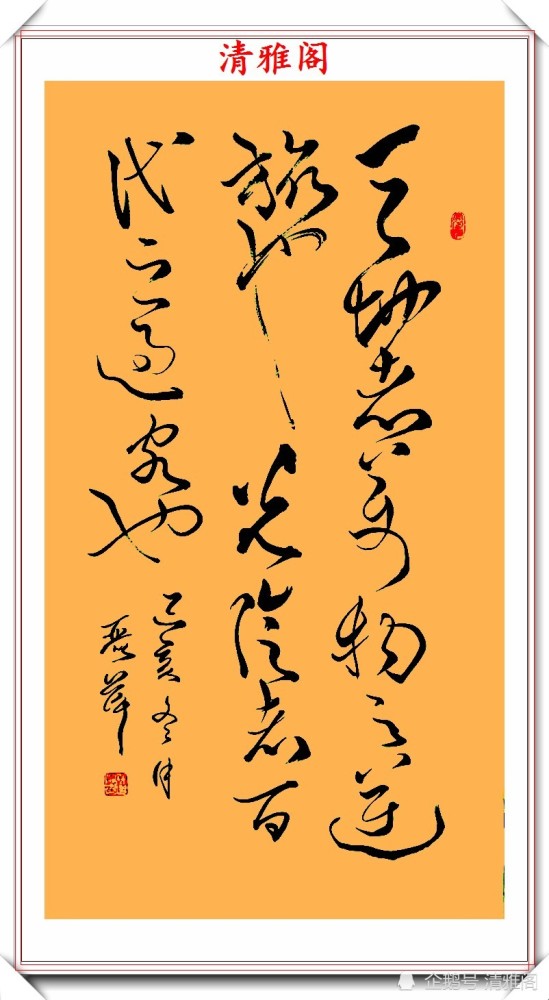 清雅阁
天地者万物之逆
旅也光阴者百
代之过客也
己亥冬月
企鹅号 清雅阁